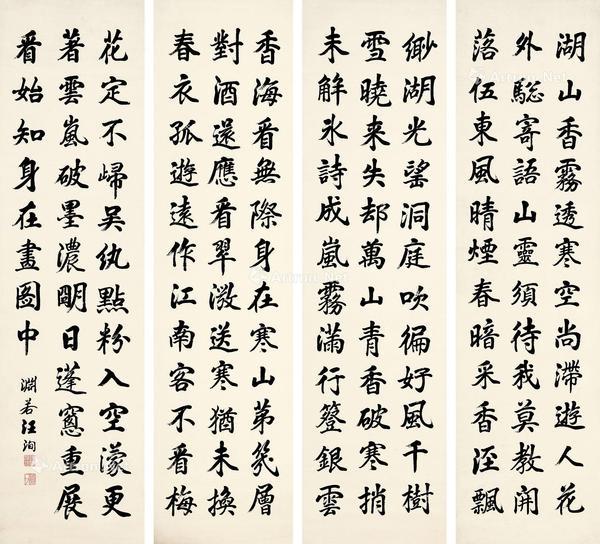 湖山香霧透寒空尚滯遊人花
外驄寄語山靈須待我莫教開
落伍東風晴煙春暗采香涇飄
緲湖光望洞庭吹徧好風千樹
雪曉来失却萬山青香破寒捎
未解氷詩成嵐霧滿行簦銀雲
香海看無際身在寒山苐幾層
對酒還應看翠微送寒猶未換
春衣孤遊遠作江南客不看梅
花定不歸吳紈點粉入空濛更
著雲嵐破墨濃明日蓬窻重展
看始知身在畫圖中
淵若汪洵